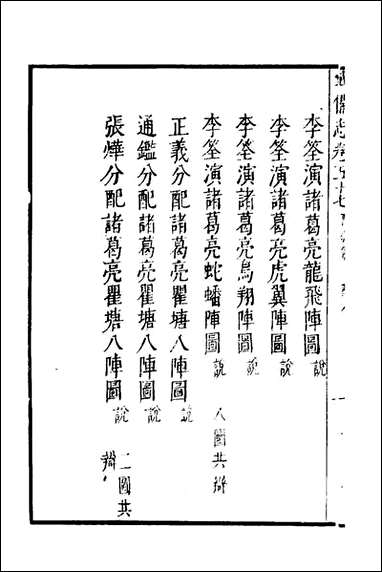 武備志卷五十七
李筌演諸葛亮龍飛陣圖說
李筌演諸葛亮虎翼陣圖說
李筌演諸葛亮鳥翔陣圖說
李筌演諸葛亮蛇蟠陣圖說 八圖共辯
正義分配諸葛亮瞿塘八陣圖說
通鑑分配諸葛亮瞿塘八陣圖說
張燁分配諸葛亮瞿塘八陣圖說 二圖共辯